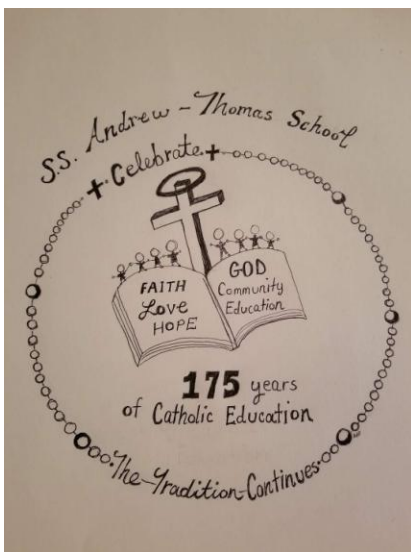 S.S. Andrew-Thomas School
Celebrate
FAITH
Love
HOPE
GOD
Community
Education
175 years
of Catholic Education
The-Tradition-Continues